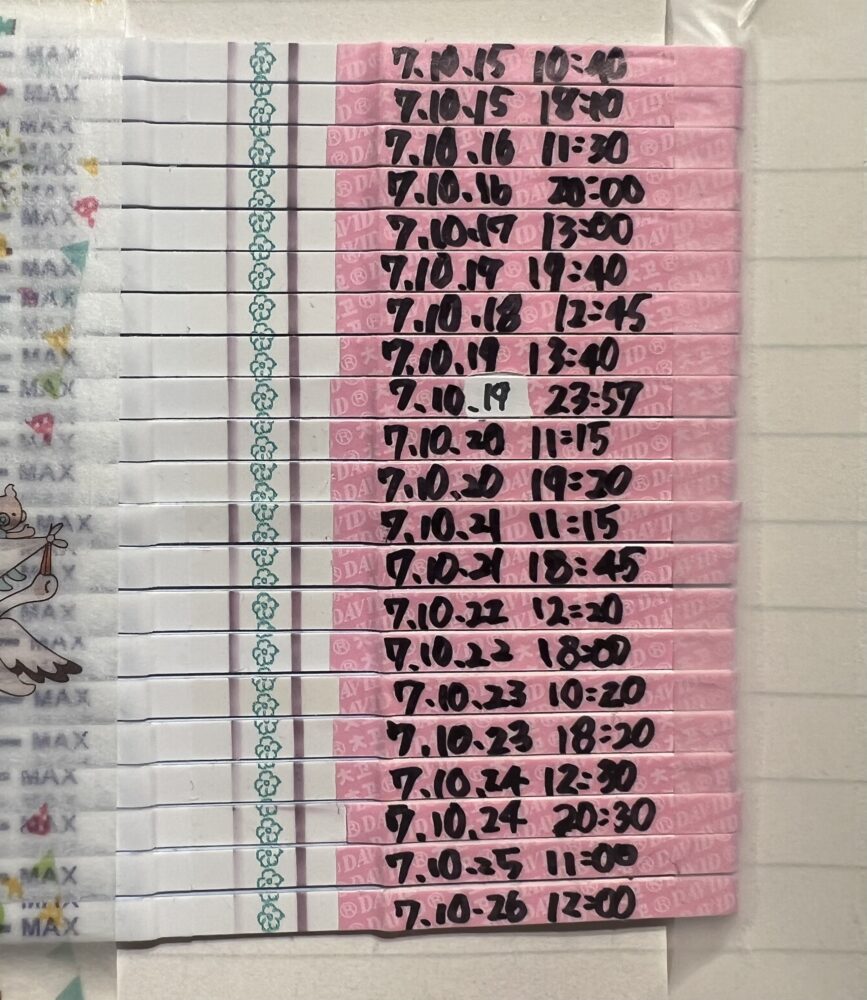 MAX 7.10.15 10:40
MAX 7.10.15 18:10
MAX DAVID 7.10.16 11:30
MAX 7.10.16 20:00
MAX 7.10.17 13:00
MAX 7.10.17 19:40
MAX 7.10.18 12:45
MAX 7.10.19 13:40
MAX 7.10.19 23:57
MAX 7.10.20 11:15
MAX 7.10.20 19:30
MAX 7.10.21 11:15
MAX DAVID 7.10.21 18:45
MAX 7.10.22 12:20
MAX 7.10.22 18:00
MAX 7.10.23 10:20
MAX 7.10.23 18:20
MAX 7.10.24 12:30
MAX 7.10.24 20:30
MAX DAVID 7.10.25 11:00
MAX DAVID 7.10.26 12:00